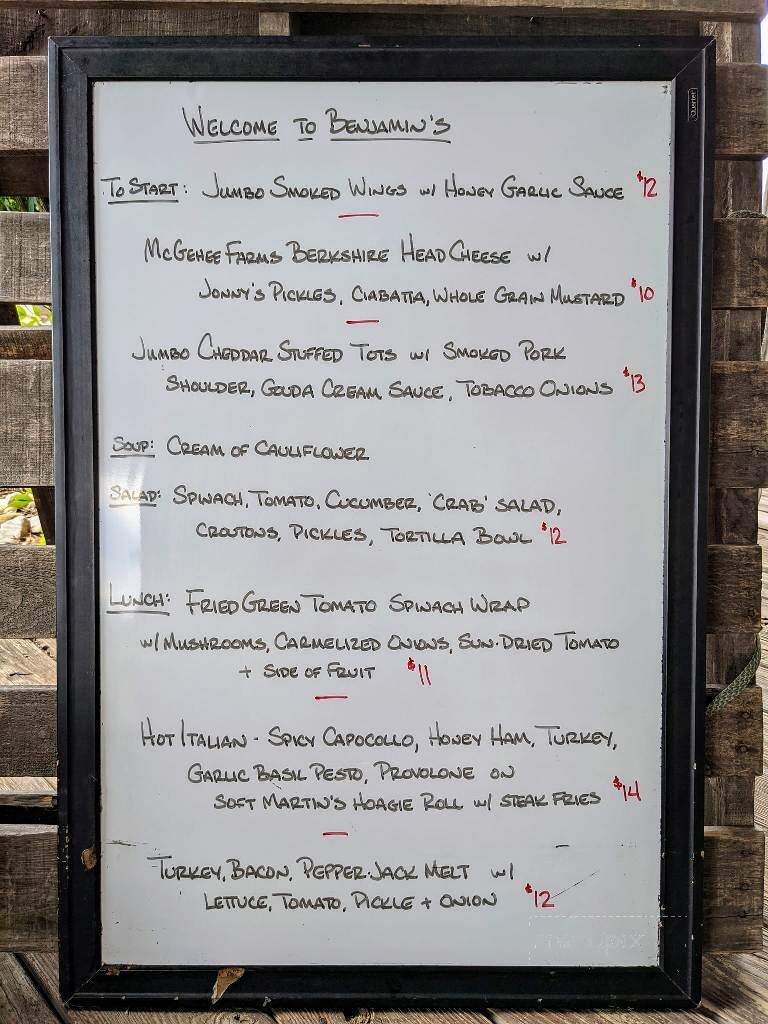 Quartet
WELCOME TO BENJAMIN'S
TO START: JUMBO SMOKED WINGS W/ HONEY GARLIC SAUCE $12
MCGEHEE FARMS BERKSHIRE HEAD CHEESE W/
JONNY'S PICKLES, CIABATTA, WHOLE GRAIN MUSTARD $10
JUMBO CHEDDAR STUFFED TOTS W/ SMOKED PORK
SHOULDER, GOUDA CREAM SAUCE, TOBACCO ONIONS $13
SOUP: CREAM OF CAULIFLOWER
SALAD: SPINACH, TOMATO, CUCUMBER, 'CRAB' SALAD,
CROUTONS, PICKLES, TORTILLA BOWL $12
LUNCH: FRIED GREEN TOMATO SPINACH WRAP
W/ MUSHROOMS, CARMELIZED ONIONS, SUN-DRIED TOMATO
+ SIDE OF FRUIT $11
HOT ITALIAN - SPICY CAPOCOLLO, HONEY HAM, TURKEY,
GARLIC BASIL PESTO, PROVOLONE ON
SOFT MARTIN'S HOAGIE ROLL W/ STEAK FRIES $14
TURKEY, BACON, PEPPER-JACK MELT W/
LETTUCE, TOMATO, PICKLE + ONION $12